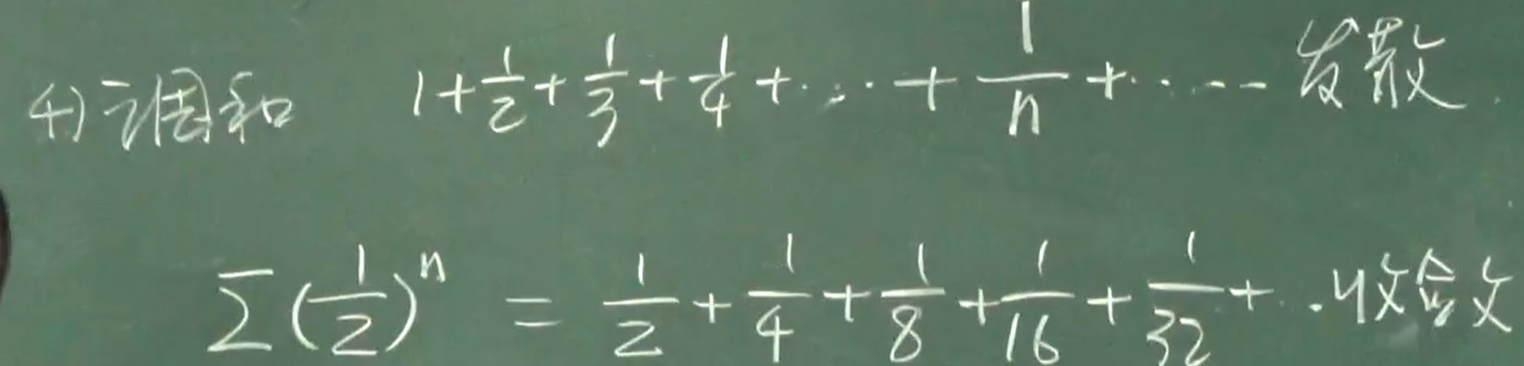 (4) 调和 1+\frac{1}{2}+\frac{1}{3}+\frac{1}{4}+\cdots+\frac{1}{n}+\cdots 发散.
\sum(\frac{1}{2})^n = \frac{1}{2}+\frac{1}{4}+\frac{1}{8}+\frac{1}{16}+\frac{1}{32}+\cdots 收敛